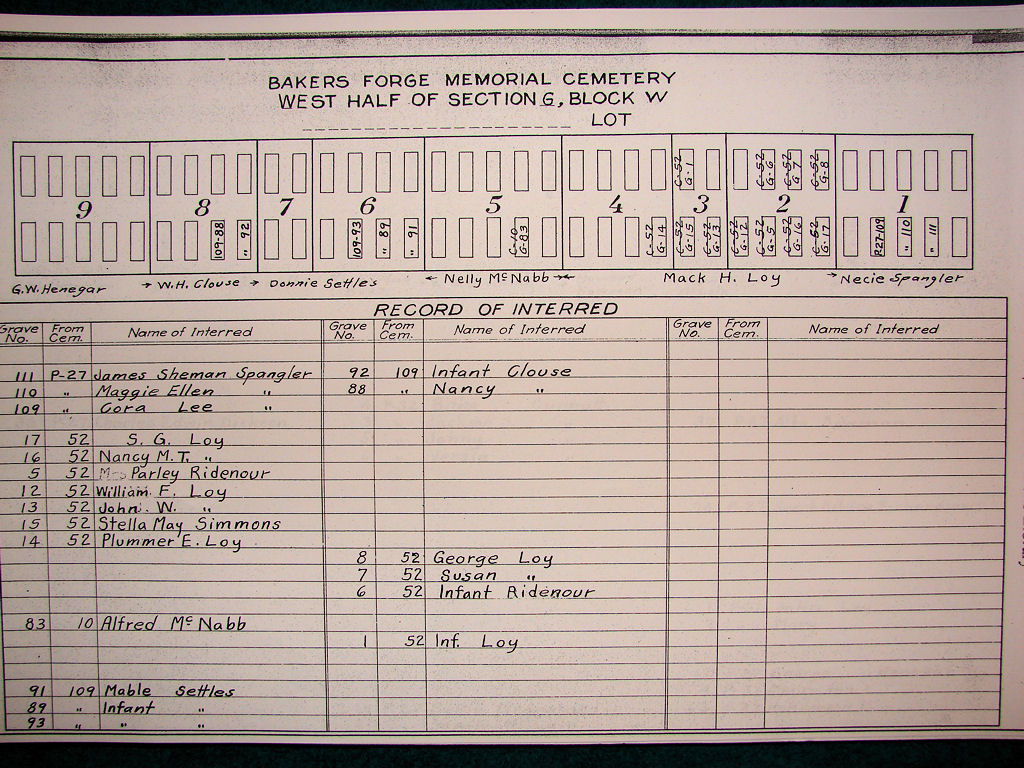 BAKERS FORGE MEMORIAL CEMETERY
WEST HALF OF SECTION G, BLOCK W
LOT
C-52 G-1 C-52 G-6 C-52 G-7 C-52 G-8
9 8 7 6 5 4 3 2 1
109-88 " 92 109-93 " 89 " 91 C-10 G-83 C-52 G-14 C-52 G-15 C-52 G-13 C-52 G-12 C-52 G-5 C-52 G-16 C-52 G-17 P.27-109 " 110 " 111
G.W. Henegar → W.H. Clouse → Donnie Settles ← Nelly McNabb → ← Mack H. Loy → Necie Spangler
RECORD OF INTERRED
Grave No. From Cem. Name of Interred Grave No. From Cem. Name of Interred Grave No. From Cem. Name of Interred
111 P-27 James Sheman Spangler 92 109 Infant Clouse
110 " Maggie Ellen " 88 " Nancy "
109 " Cora Lee "
17 52 S. G. Loy
16 52 Nancy M.T. "
5 52 Mrs Parley Ridenour
12 52 William F. Loy
13 52 John W. "
15 52 Stella May Simmons
14 52 Plummer E. Loy
8 52 George Loy
7 52 Susan "
6 52 Infant Ridenour
83 10 Alfred McNabb
1 52 Inf. Loy
91 109 Mable Settles
89 " Infant "
93 " " "